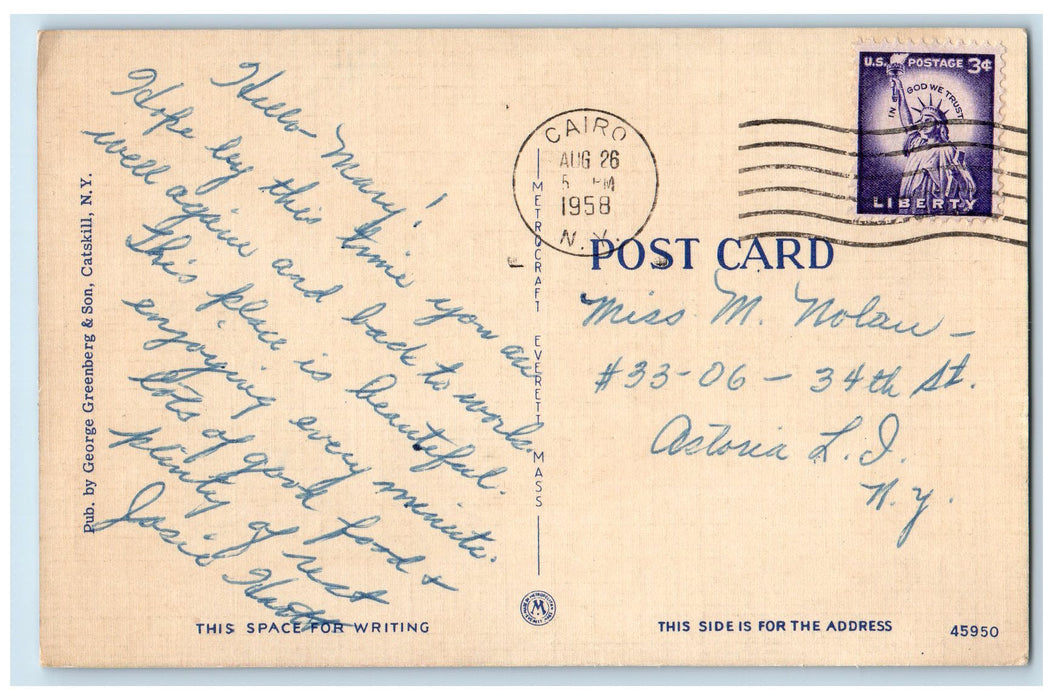 Hello Mary!
Hope by this time you are
well again and back to work.
This place is beautiful.
enjoying every minute.
lots of good food +
plenty of rest
Josie
Pub. by George Greenberg & Son, Catskill, N.Y.
THIS SPACE FOR WRITING
METROCRAFT EVERETT MASS
CAIRO
AUG 26
5 PM
1958
N.Y.
U.S. POSTAGE 3¢
IN GOD WE TRUST
LIBERTY
POST CARD
Miss M. Nolan -
#33-06 - 34th St.
Astoria L.I.
N.Y.
THIS SIDE IS FOR THE ADDRESS
45950